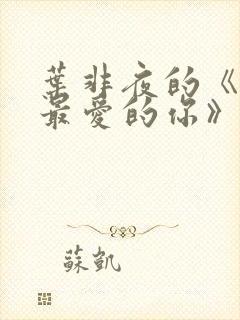 葉非夜的《
最愛的你》
蘇凱